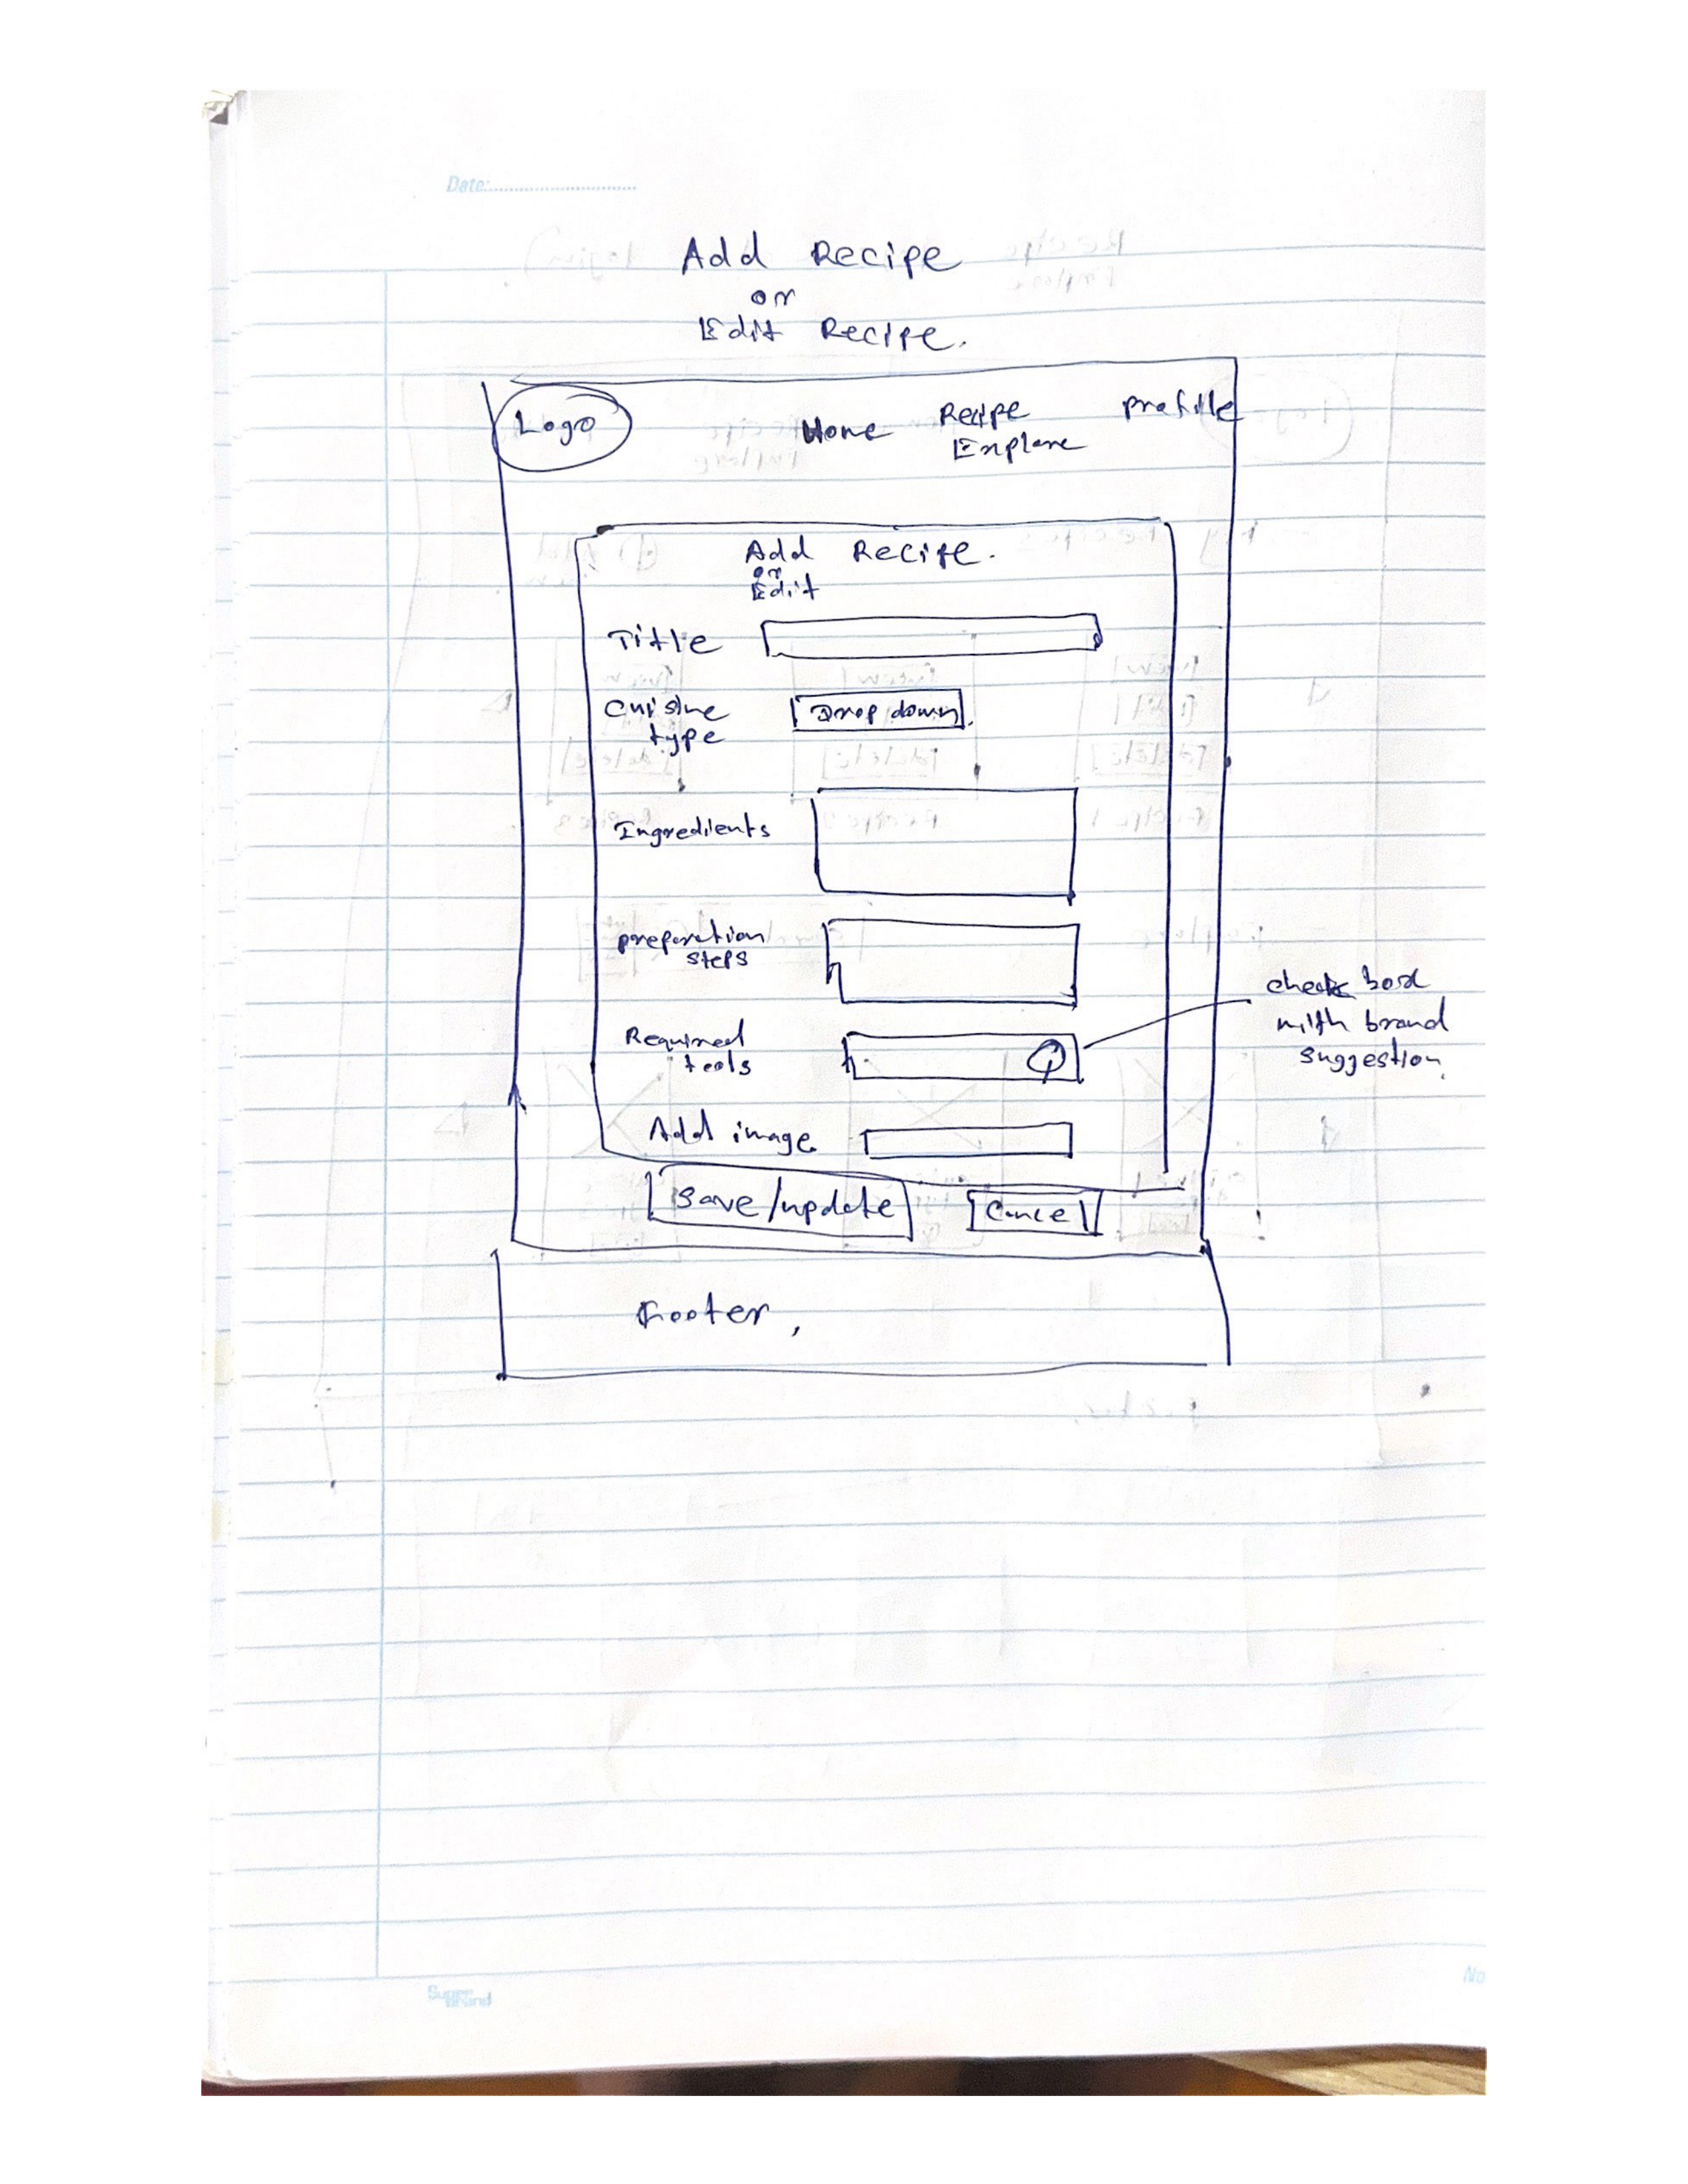 Date:
Add Recipe
or
Edit Recipe.
Logo
Home Recipe Explore profile
Add Recipe.
or
Edit
Title
Cuisine type
Drop down
Ingredients
preparation steps
Required tools
check box
with brand
suggestion
Add image
Save/update Cancel
Footer,
Super
Brand
No